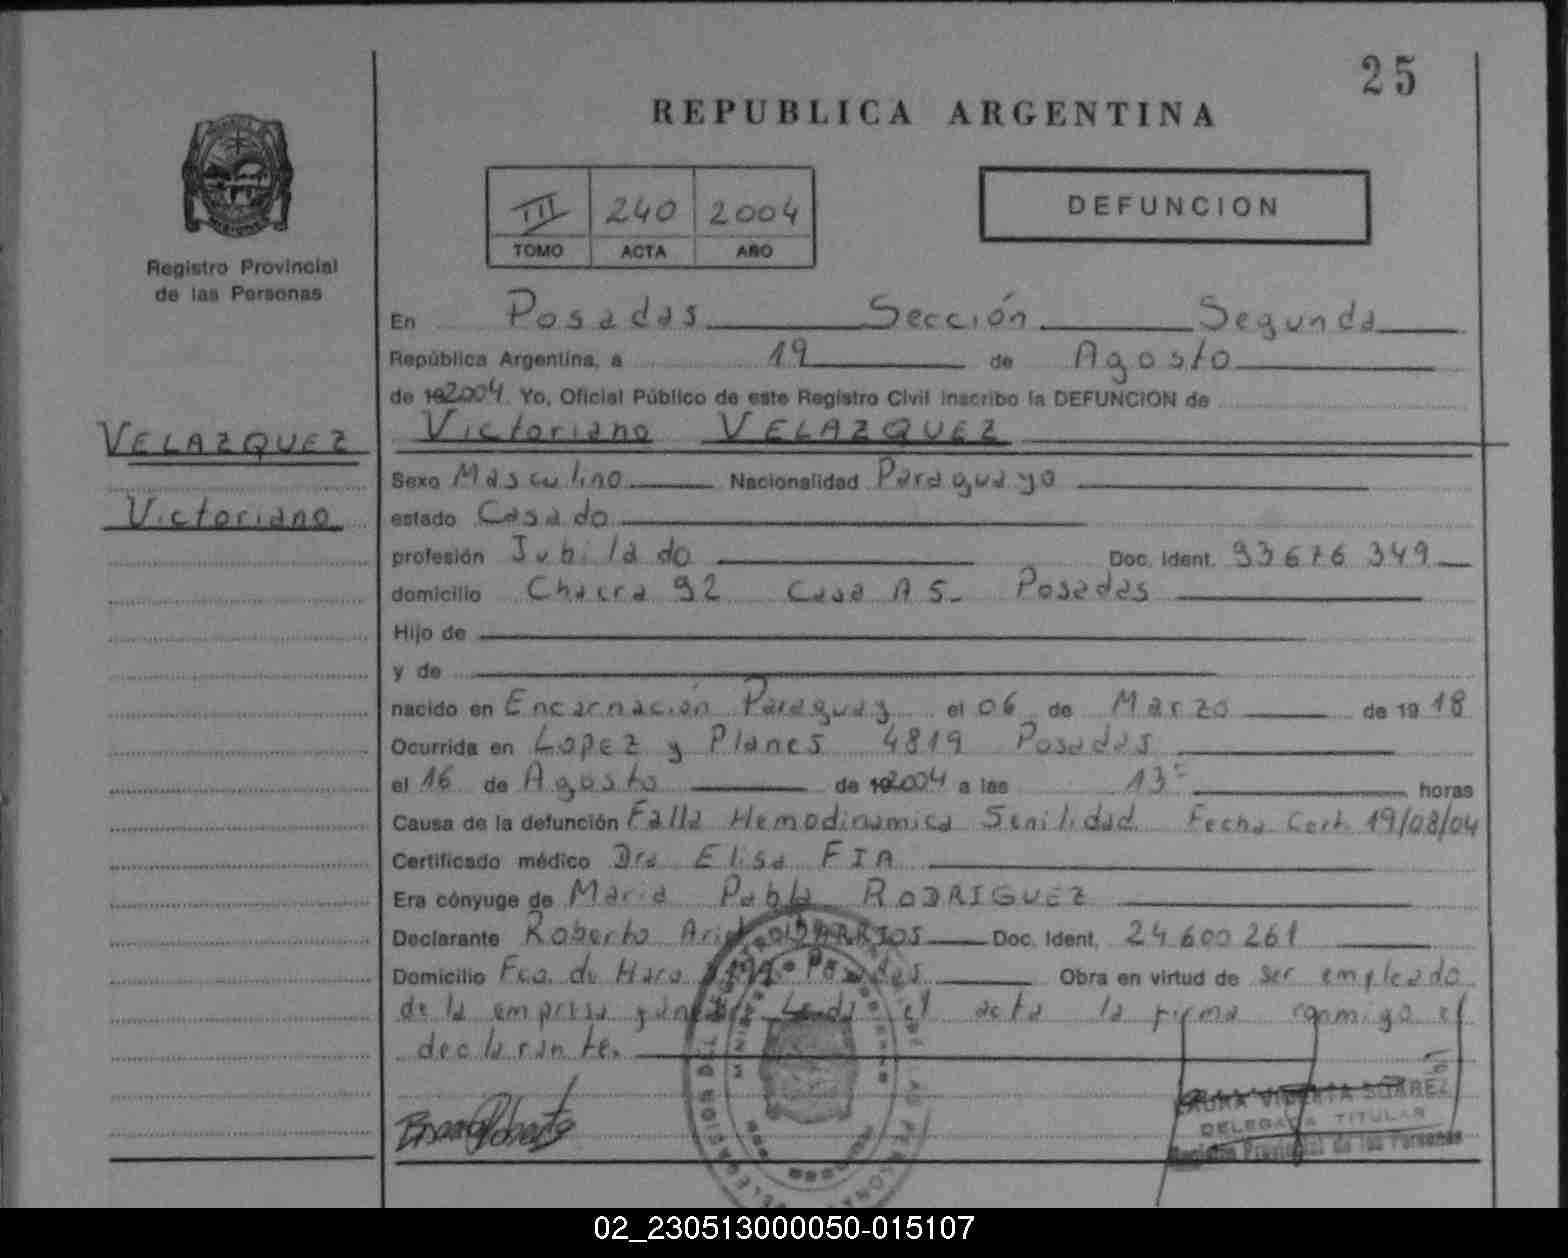 25
REPUBLICA ARGENTINA
III 240 2004
TOMO ACTA AÑO
DEFUNCION
Registro Provincial
de las Personas
En Posadas Sección Segunda
República Argentina, a 19 de Agosto
de 192004. Yo, Oficial Público de este Registro Civil inscribo la DEFUNCION de
VELAZQUEZ
Victoriano
Victoriano VELAZQUEZ
Sexo Masculino Nacionalidad Paraguayo
estado Casado
profesión Jubilado Doc. Ident. 93676349
domicilio Chacra 92 Casa A 5- Posadas
Hijo de
y de
nacido en Encarnación Paraguay el 06 de Marzo de 1918
Ocurrida en Lopez y Planes 4819 Posadas
el 16 de Agosto de 192004 a las 13 horas
Causa de la defunción Falla Hemodinamica Senilidad. Fecha Cert. 19/08/04
Certificado médico Dra Elisa FIA
Era cónyuge de Maria Pabla RODRIGUEZ
Declarante Roberto BARRIOS Doc. Ident. 24600261
Domicilio Fco. de Haro Obra en virtud de ser empleado
de la empresa Leida el acta la firma conmigo el
declarante.
SUAREZ
DELEGADA TITULAR
Registro Provincial de las Personas
02_230513000050-015107